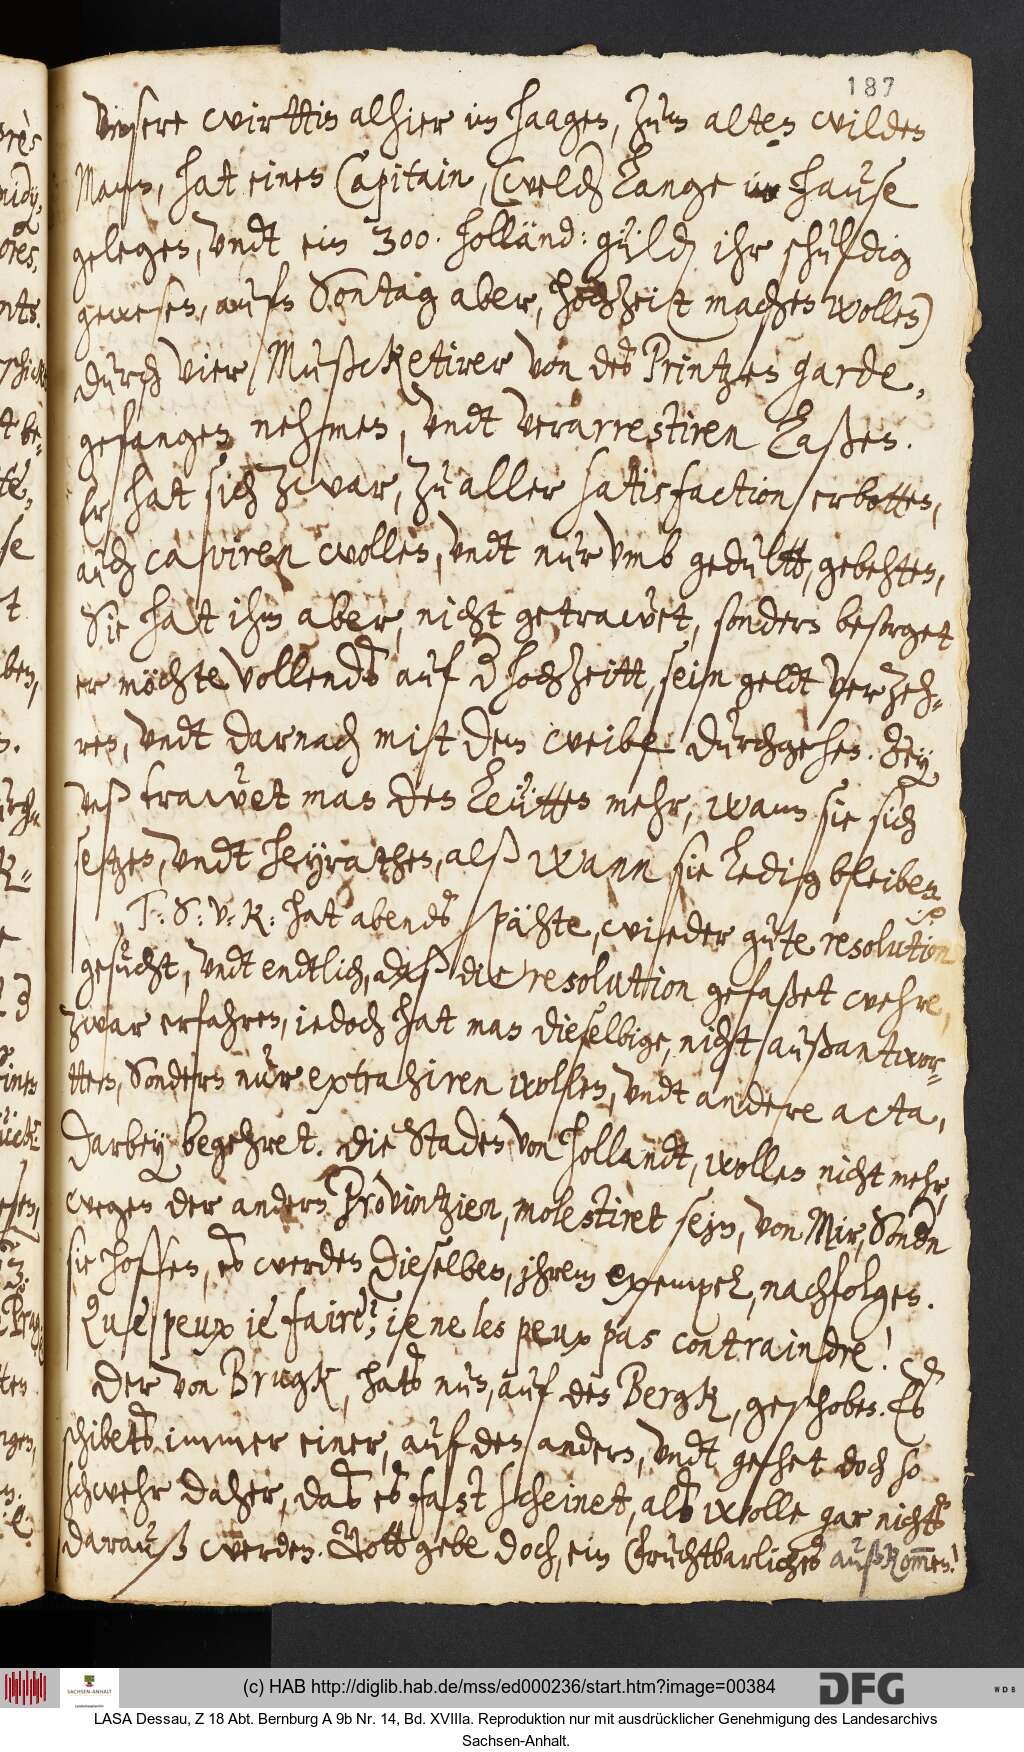 187
Vnsere wirttin alhier im Haagen, zum alten wilden
Mann, hat einen Capitain, (welch lange im Hause
gelegen, vndt ein 300. Holländ: güld ihr schuldig
gewesen, aufn Sontag aber, hochzeit machen wollen)
durch vier Mußcketirer von des Printzen garde,
gefangen nehmen, vndt verarrestiren laßen.
Er hat sich zwar, zu aller satisfaction erbotten,
auch caviren wollen, vndt nur vmb gedultt, gebehten,
Sie hat ihm aber, nicht getrawet, sondern besorget
er möchte vollends auf d hochzeitt, sein geldt verzeh-
ren, vndt darnach mit dem weibe durchgehen. Bey
vnß trawet man den Leütten mehr, wann sie sich
setzen, vndt heyrathen, alß wann sie ledig bleiben.
T: S: V: K: hat abends spähte, wieder gute resolution
gesucht, vndt endtlich, daß die resolution gefaßet wehre,
zwar erfahren, iedoch hat man dieselbige, nicht außantwor-
tten, Sondern nur extrahiren wollen, vndt andere acta,
darbey begehret. Die Staden von Hollandt, wollen nicht mehr,
wegen der andern Provintzien, molestiret sein, von Mir, Sondn
sie hoffen, es werden dieselben, ihrem exempel, nachfolgen.
Que peux ie faire? ie ne les peux pas contraindre!
Der von Brugk, hats nun, auf den Bergk, geschoben. Es
schibets immer einer, auf den andern, vndt gehet doch so
schwehr daher, das es fast scheinet, als wolle gar nichts
darauß werden. Gott gebe doch, ein fruchtbarliches außkommen!
(c) HAB http://diglib.hab.de/mss/ed000236/start.htm?image=00384
SACHSEN-ANHALT
DFG
WDB
LASA Dessau, Z 18 Abt. Bernburg A 9b Nr. 14, Bd. XVIIIa. Reproduktion nur mit ausdrücklicher Genehmigung des Landesarchivs
Sachsen-Anhalt.